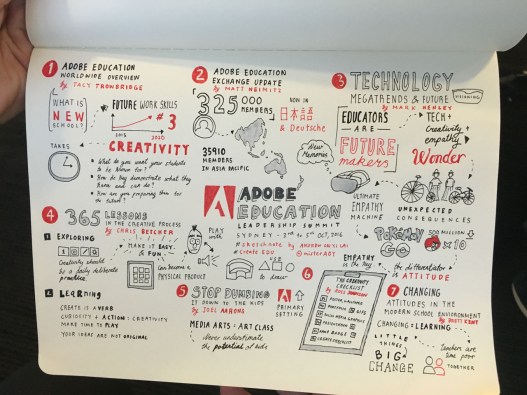 1 ADOBE EDUCATION
WORLDWIDE OVERVIEW
by TACY TROWBRIDGE
WHAT IS
NEW
SCHOOL?
FUTURE WORK SKILLS
#3
2015
2020
CREATIVITY
TAKES
• What do you want your students
to be known for?
• How do they demonstrate what they
know and can do?
• How are you preparing them for
the future?
2 ADOBE EDUCATION
EXCHANGE UPDATE
by MATT NIEMITZ
325 000
MEMBERS
NOW IN
日本語
& Deutsche
35910
MEMBERS
IN ASIA PACIFIC
3 TECHNOLOGY
MEGATRENDS & FUTURE
by MARK HENLEY
EDUCATORS
ARE
FUTURE
makers
TECH +
Creativity +
empathy
Wonder
New
Memories
ULTIMATE
EMPATHY
MACHINE
UNEXPECTED
CONSEQUENCES
POKÉMON
GO
500 MILLION
x10
EMPATHY
is the key
the differentiator
is ATTITUDE
ADOBE
EDUCATION
LEADERSHIP SUMMIT
SYDNEY - 2016
#sketchnote by
4 365 LESSONS
IN THE CREATIVE PROCESS
by CHRIS BETCHER
1 EXPLORING
Creativity should
be a daily deliberate
practice
MAKE IT EASY
& FUN
Can become a
PHYSICAL PRODUCT
PLAY
with
to draw
2 LEARNING
CREATE IS A VERB
CURIOSITY + ACTION = CREATIVITY
MAKE TIME TO PLAY
YOUR IDEAS ARE NOT ORIGINAL
5 STOP DUMBING
IT DOWN TO THE KIDS
by JOEL AARONS
PRIMARY
SETTING
MEDIA ARTS : ART CLASS
Never underestimate
the potential of kids
6
THE CREATIVITY
CHECKLIST
7 CHANGING
ATTITUDES IN THE
MODERN SCHOOL ENVIRONMENT
by BRETT KENT
CHANGING = LEARNING
LITTLE
THINGS
BIG
CHANGE
Teachers are
time poor
TOGETHER